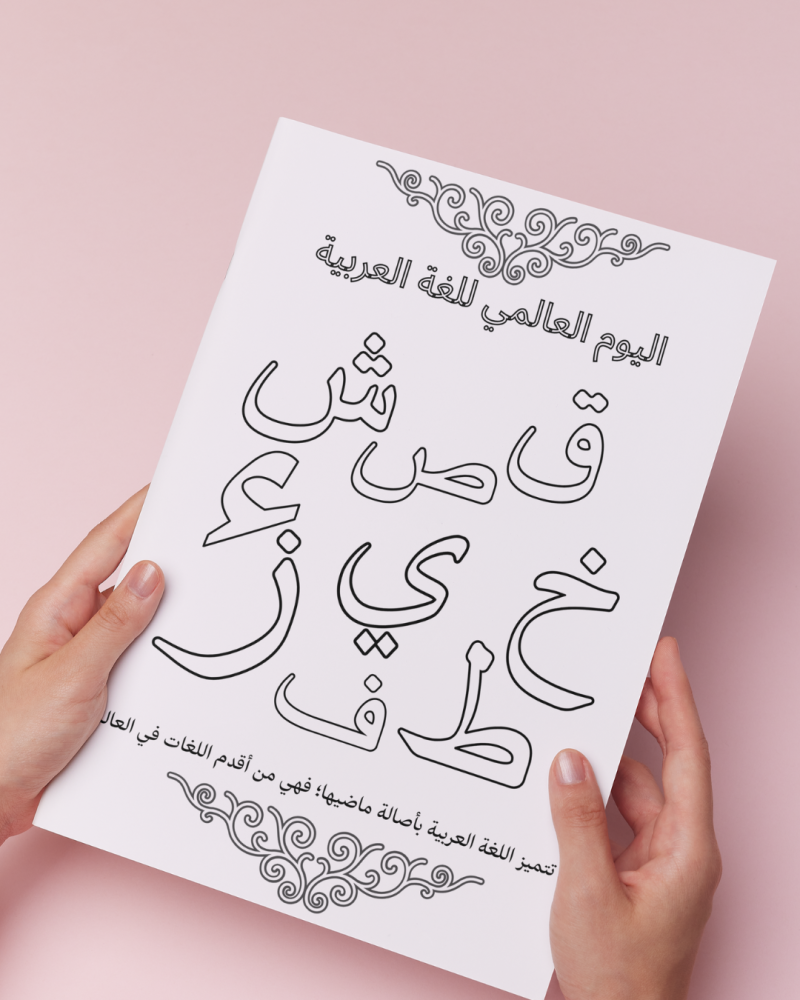 اليوم العالمي للغة العربية
ق ص ش
ء
خ ي ز
ط ف
تتميز اللغة العربية بأصالة ماضيها؛ فهي من أقدم اللغات في العال